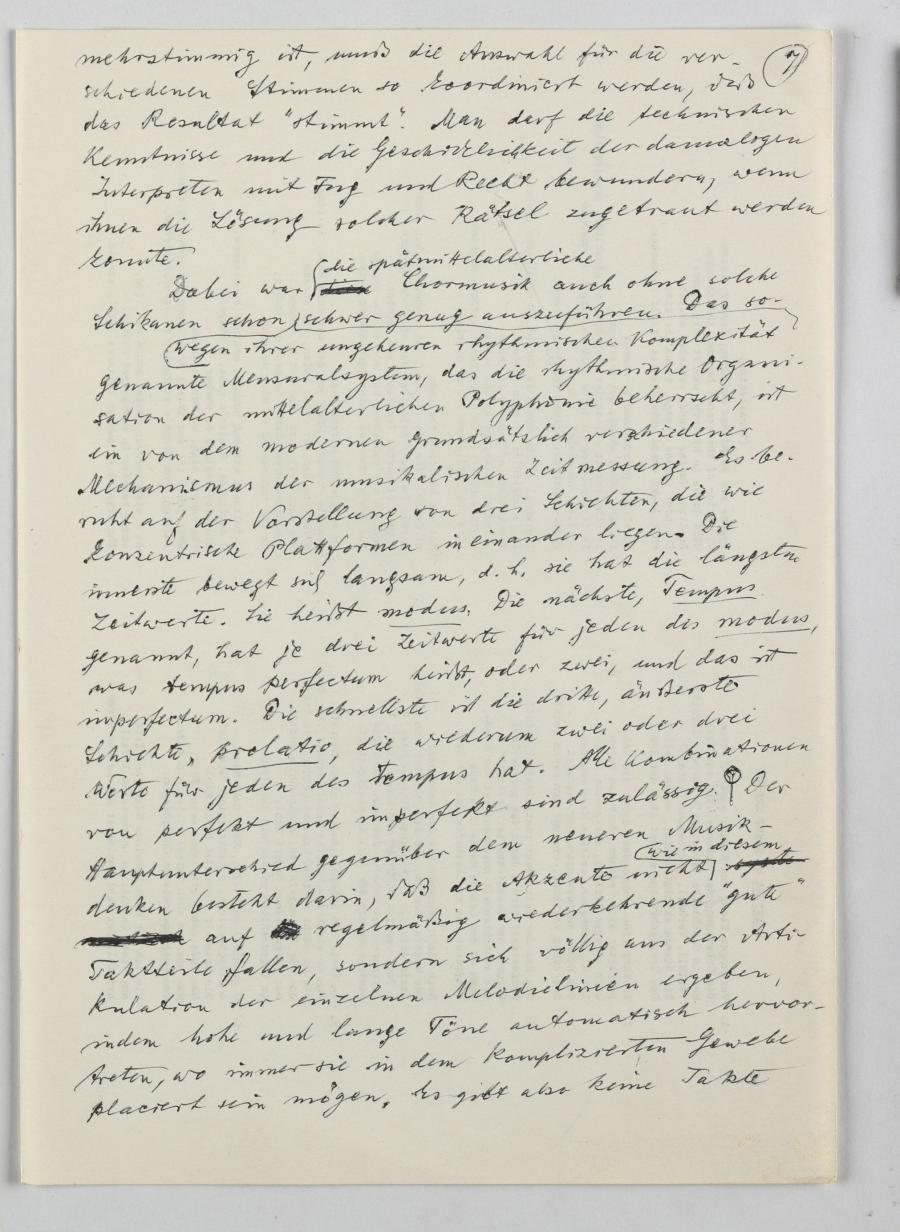 mehrstimmig ist, muß die Auswahl für die ver- 7
schiedenen Stimmen so koordiniert werden, daß
das Resultat "stimmt". Man darf die technischen
Kenntnisse und die Geschicklichkeit der damaligen
Interpreten mit Fug und Recht bewundern, wenn
ihnen die Lösung solcher Rätsel zugetraut werden
konnte.
die spätmittelalterliche
Dabei war Chormusik auch ohne solche
Schikanen schon schwer genug auszuführen. Das so-
wegen ihrer ungeheuren rhythmischen Komplexität
genannte Mensuralsystem, das die rhythmische Organi-
sation der mittelalterlichen Polyphonie beherrscht, ist
ein von dem modernen grundsätzlich verschiedener
Mechanismus der musikalischen Zeitmessung. Es be-
ruht auf der Vorstellung von drei Schichten, die wie
konzentrische Plattformen ineinander liegen. Die
innerste bewegt sich langsam, d. h. sie hat die längsten
Zeitwerte. Sie heißt modus. Die nächste, Tempus
genannt, hat je drei Zeitwerte für jeden des modus,
was tempus perfectum heißt, oder zwei, und das ist
imperfectum. Die schnellste ist die dritte, äußerste
Schichte, prolatio, die wiederum zwei oder drei
Werte für jeden des Tempus hat. Alle Kombinationen
von perfekt und imperfekt sind zulässig. Der
Hauptunterschied gegenüber dem neueren Musik-
wie in diesem
denken besteht darin, daß die Akzente nicht
auf regelmäßig wiederkehrende "gute"
Taktteile fallen, sondern sich völlig aus der Arti-
kulation der einzelnen Melodielinien ergeben,
indem hohe und lange Töne automatisch hervor-
treten, wo immer sie in dem komplizierten Gewebe
placiert sein mögen. Es gibt also keine Takte